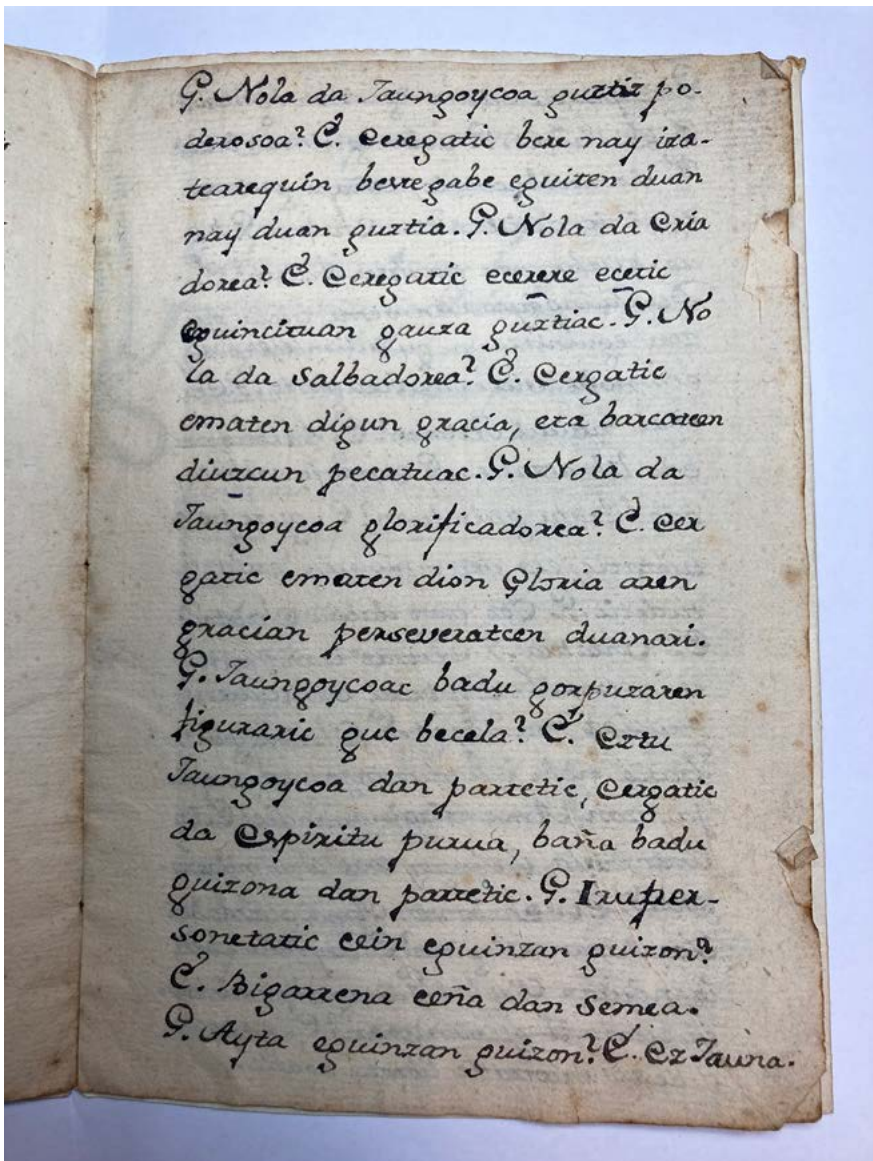 G. Nola da Jaungoycoa guztiz po-
derosoa? E. Ceregatic bere nay iza-
tearequin beste gabe eguiten duan
nay duan guztia. G. Nola da Cria
dorea? E. Ceregatic ecerere ecetic
eguincituan gauza guztiac. G. No
la da Salbadorea? E. Cergatic
ematen digun gracia, eta barcatcen
diuzcun pecatuac. G. Nola da
Jaungoycoa glorificadorea? E. Cer
gatic ematen dion Gloria aren
gracian perseveratcen duanari.
G. Jaungoycoac badu gorputzaren
figuraric guc becela? E. Eztu
Jaungoycoa dan partetic, Cergatic
da Espiritu purua, baña badu
guizona dan partetic. G. Iruper-
sonetatic cein eguinzan guizon?
E. Bigarrena ceña dan Semea.
G. Ayta eguinzan guizon? E. Ez Jauna.